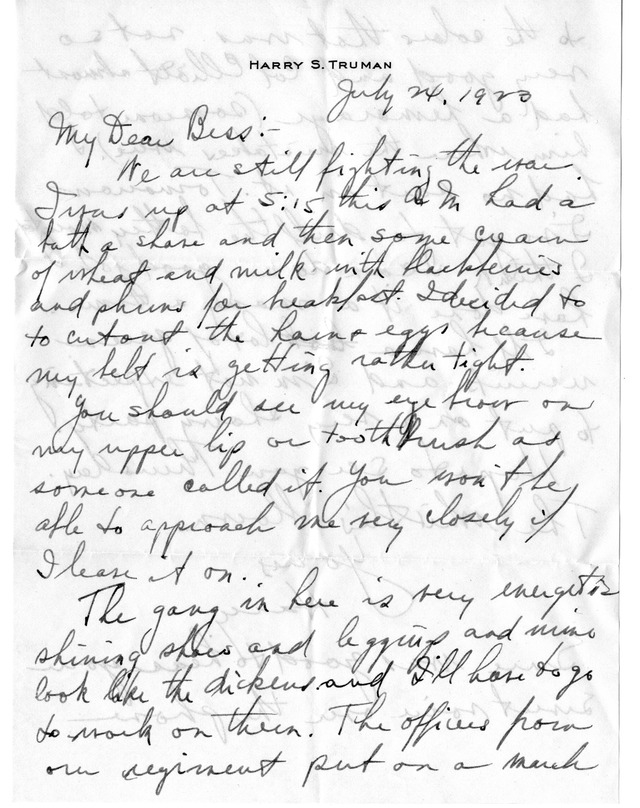 HARRY S. TRUMAN
July 24, 1923
My Dear Bess:-
We are still fighting the war.
I was up at 5:15 this A M had a
bath a shave and then some cream
of wheat and milk with blackberries
and prunes for breakfast. I decided to
to cut out the ham & eggs because
my belt is getting rather tight.
You should see my eye brow on
my upper lip or tooth brush as
someone called it. You won't be
able to approach me very closely if
I leave it on.
The gang in here is very energetic
shining shoes and leggings and mine
look like the dickens and I'll have to go
to work on them. The officers from
our regiment put on a march